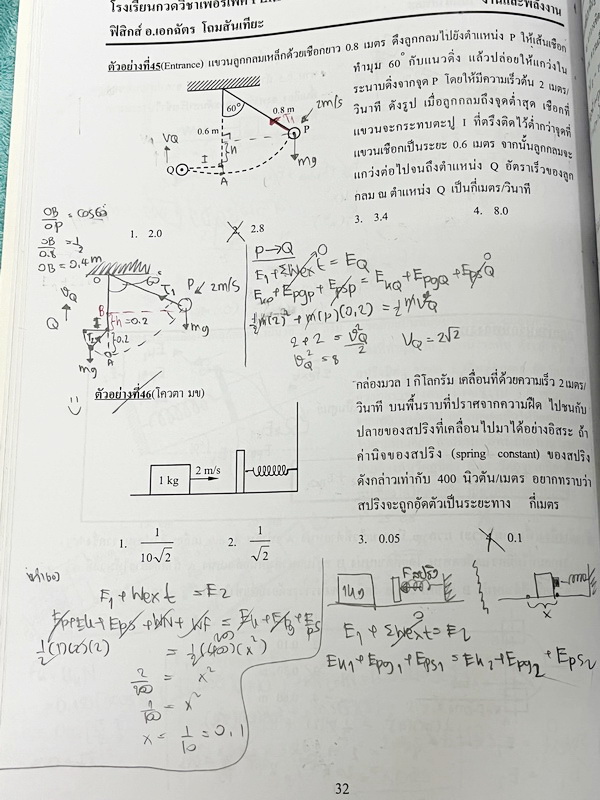 โรงเรียนกวดวิชาเพอร์เฟค
งานและพลังงาน
ฟิสิกส์ อ.เอกฉัตร โถมสันเทียะ
ตัวอย่างที่45(Entrance) แขวนลูกกลมเหล็กด้วยเชือกยาว 0.8 เมตร ดึงลูกกลมไปยังตำแหน่ง P ให้เส้นเชือก
ทำมุม 60° กับแนวดิ่ง แล้วปล่อยให้แกว่งใน
ระนาบดิ่งจากจุด P โดยให้มีความเร็วต้น 2 เมตร/
วินาที ดังรูป เมื่อลูกกลมถึงจุดต่ำสุด เชือกที่
แขวนจะกระทบตะปู I ที่ตรึงติดไว้ต่ำกว่าจุดที่
แขวนเชือกเป็นระยะ 0.6 เมตร จากนั้นลูกกลมจะ
แกว่งต่อไปจนถึงตำแหน่ง Q อัตราเร็วของลูก
กลม ณ ตำแหน่ง Q เป็นกี่เมตร/วินาที
60° 0.8 m 2m/s
T1
P
0.6 m
h
mg
VQ
Q I
A
1. 2.0
2. 2.8
3. 3.4
4. 8.0
OB/OP = cos60
OB/0.8 = 1/2
OB = 0.4 m
O 60°
T1 P 2m/s
VQ
Q
B
h = 0.2
I
T2 0.2
A
mg
mg
P → Q
E1 + ΣWext = EQ
EkP + EpgP + EpsP = EkQ + EpgQ + EpsQ
1/2 m(2)² + m(10)(0.2) = 1/2 mVQ²
2 + 2 = VQ²/2
VQ² = 8
VQ = 2√2
ตัวอย่างที่46(โควตา มข)
กล่องมวล 1 กิโลกรัม เคลื่อนที่ด้วยความเร็ว 2 เมตร/
วินาที บนพื้นราบที่ปราศจากความฝืด ไปชนกับ
ปลายของสปริงที่เคลื่อนไปมาได้อย่างอิสระ ถ้า
ค่านิจของสปริง (spring constant) ของสปริง
ดังกล่าวเท่ากับ 400 นิวตัน/เมตร อยากทราบว่า
สปริงจะถูกอัดตัวเป็นระยะทาง กี่เมตร
1 kg
2 m/s
1. 1/10√2
2. 1/√2
3. 0.05
4. 0.1
E1 + Wext = E2
1/2(1)(2)(2) = 1/2(400)(x²)
2/200 = x²
1/100 = x²
x = 1/10 = 0.1
1kg
Fสปริง
x
E1 + ΣWext = E2
Ek1 + Epg1 + Eps1 = Ek2 + Epg2 + Eps2
32